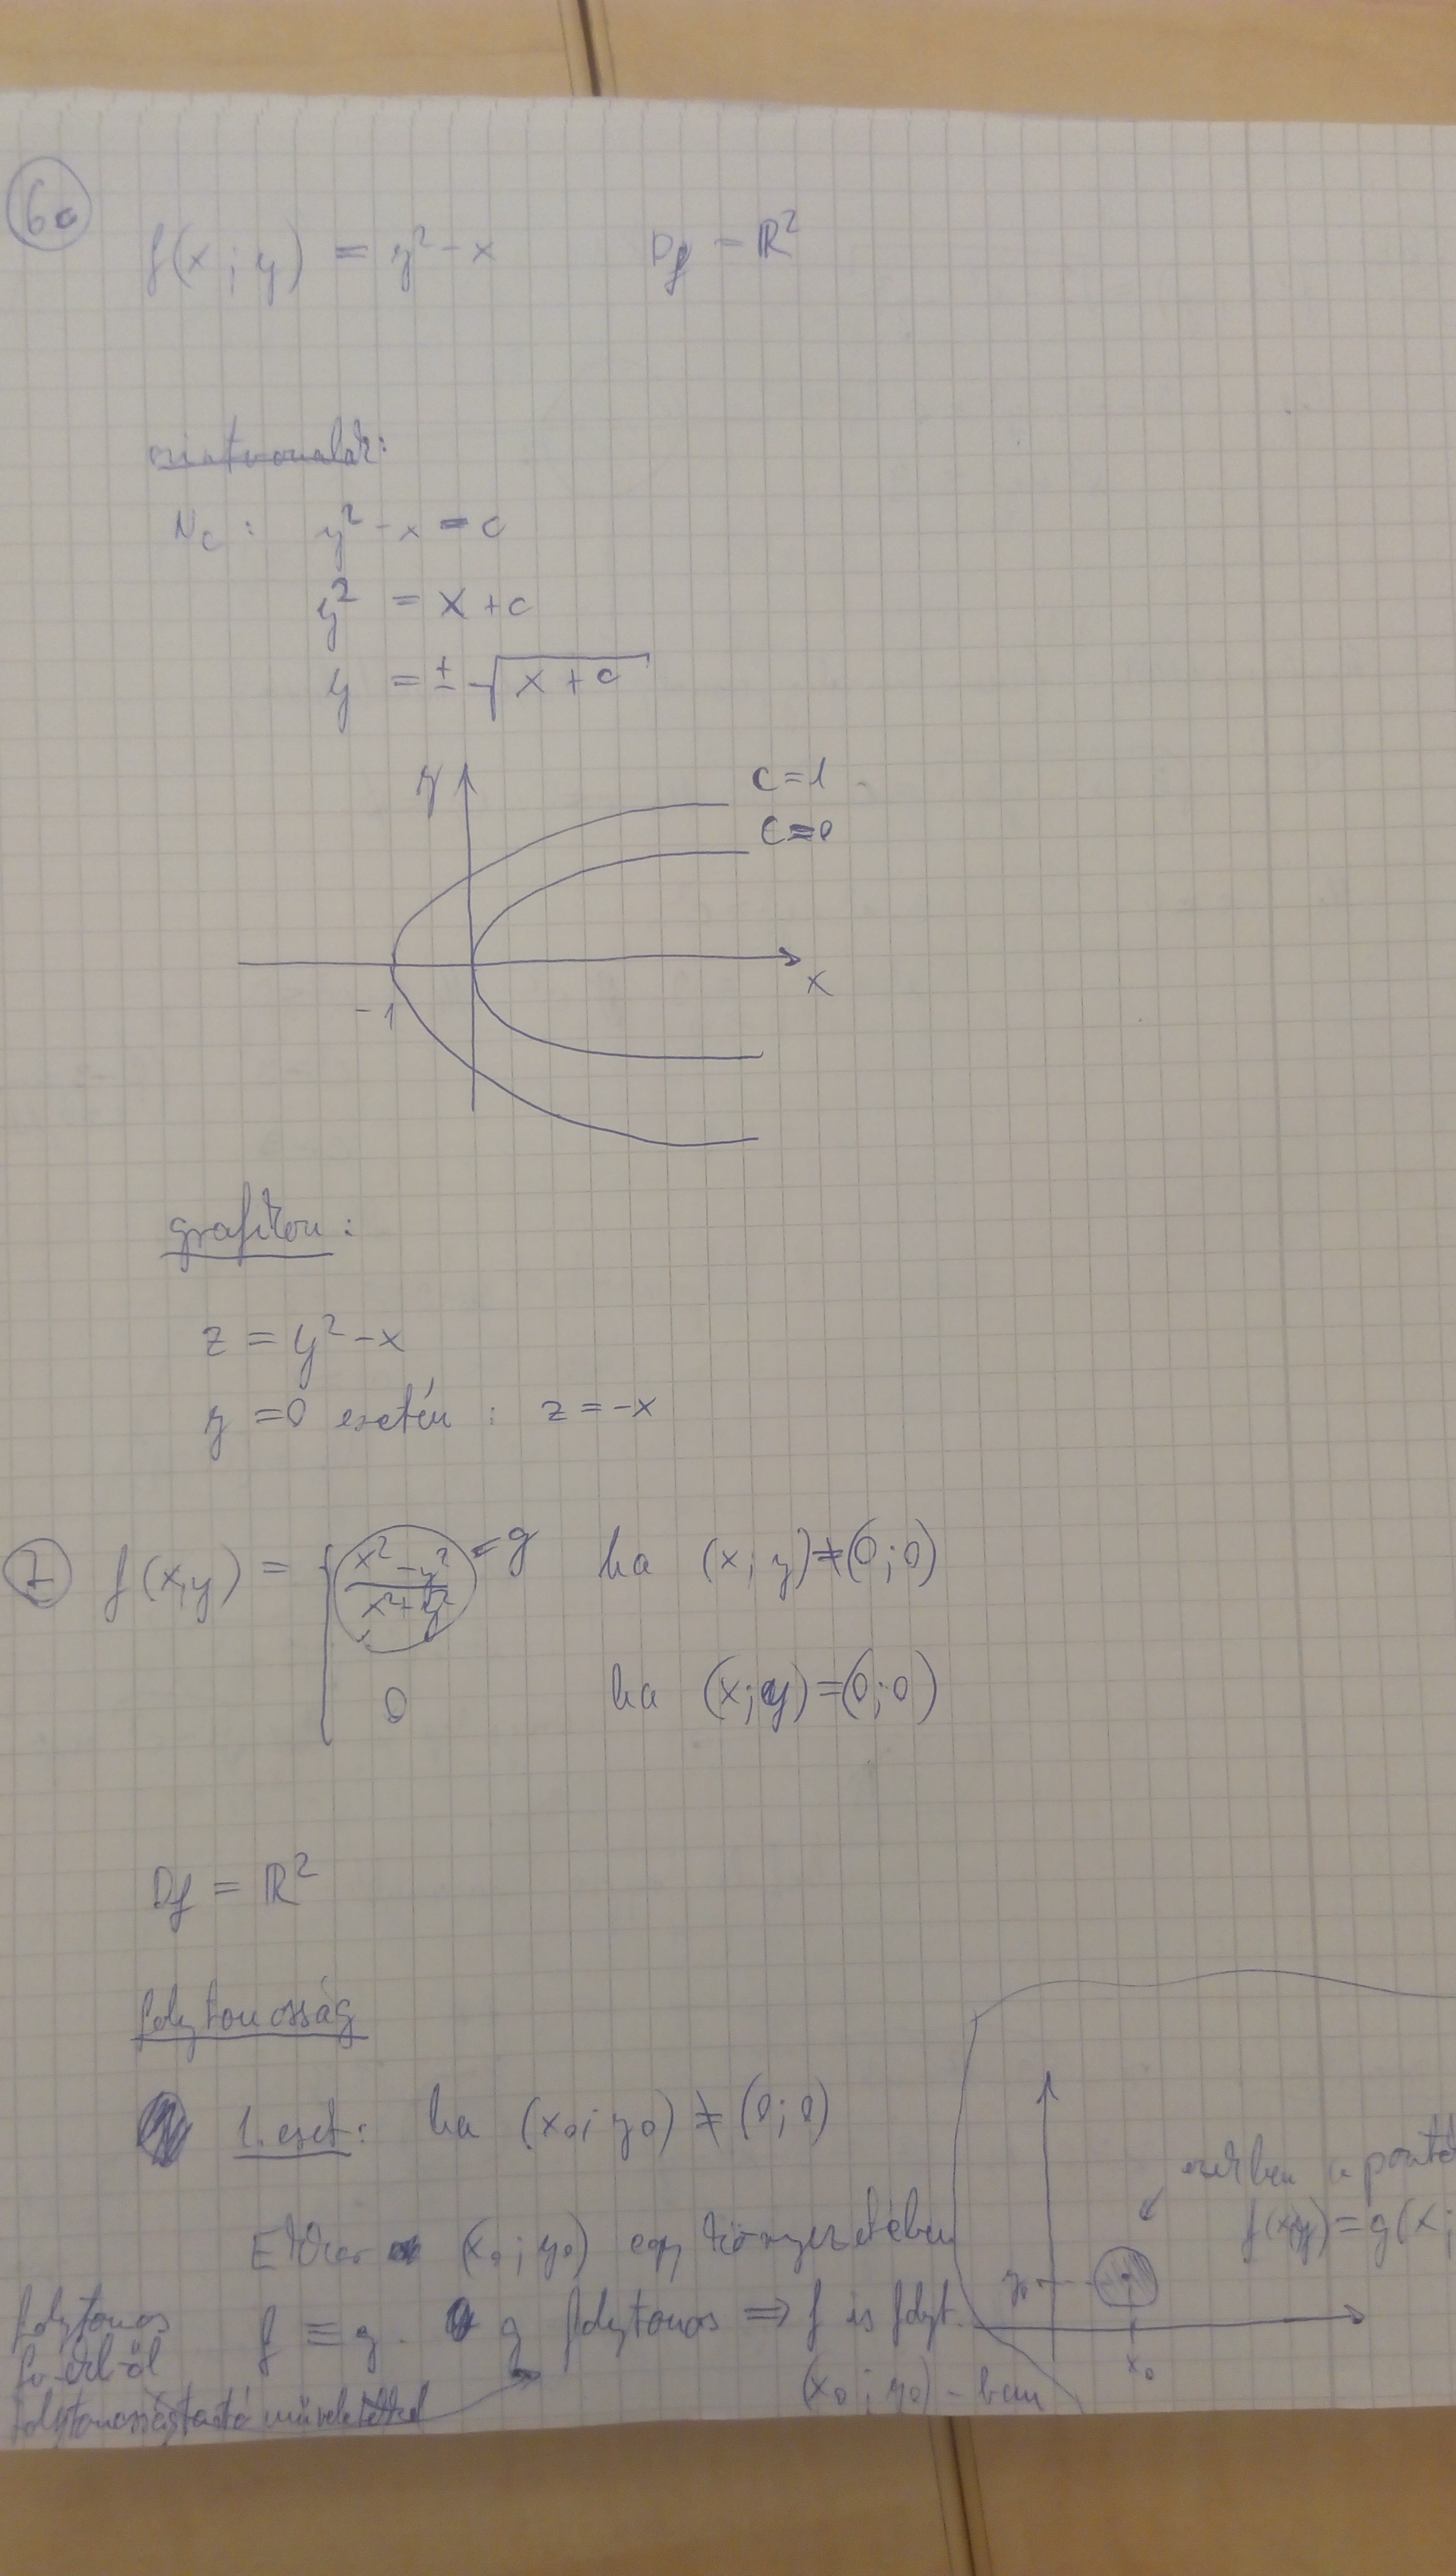 6.
f(x;y) = y² - x    Df = ℝ²
szintvonalak:
Nc: y² - x = c
y² = x + c
y = ± √(x + c)
y
c = 1
c = 0
x
-1
grafikon:
z = y² - x
y = 0 esetén: z = -x
7 f(x,y) = { (x² - y²)/(x² + y²) = g    ha (x;y) ≠ (0;0)
0    ha (x;y) = (0;0)
Df = ℝ²
folytonosság
1. eset: ha (x₀;y₀) ≠ (0;0)
Ekkor (x₀;y₀) egy környezetében
f ≡ g. g folytonos ⇒ f is folyt.
(x₀;y₀)-ban
folytonos
fv-ekből
folytonosságtartó műveletekkel
ezekben a
f(x,y) = g(x;
y₀
x₀